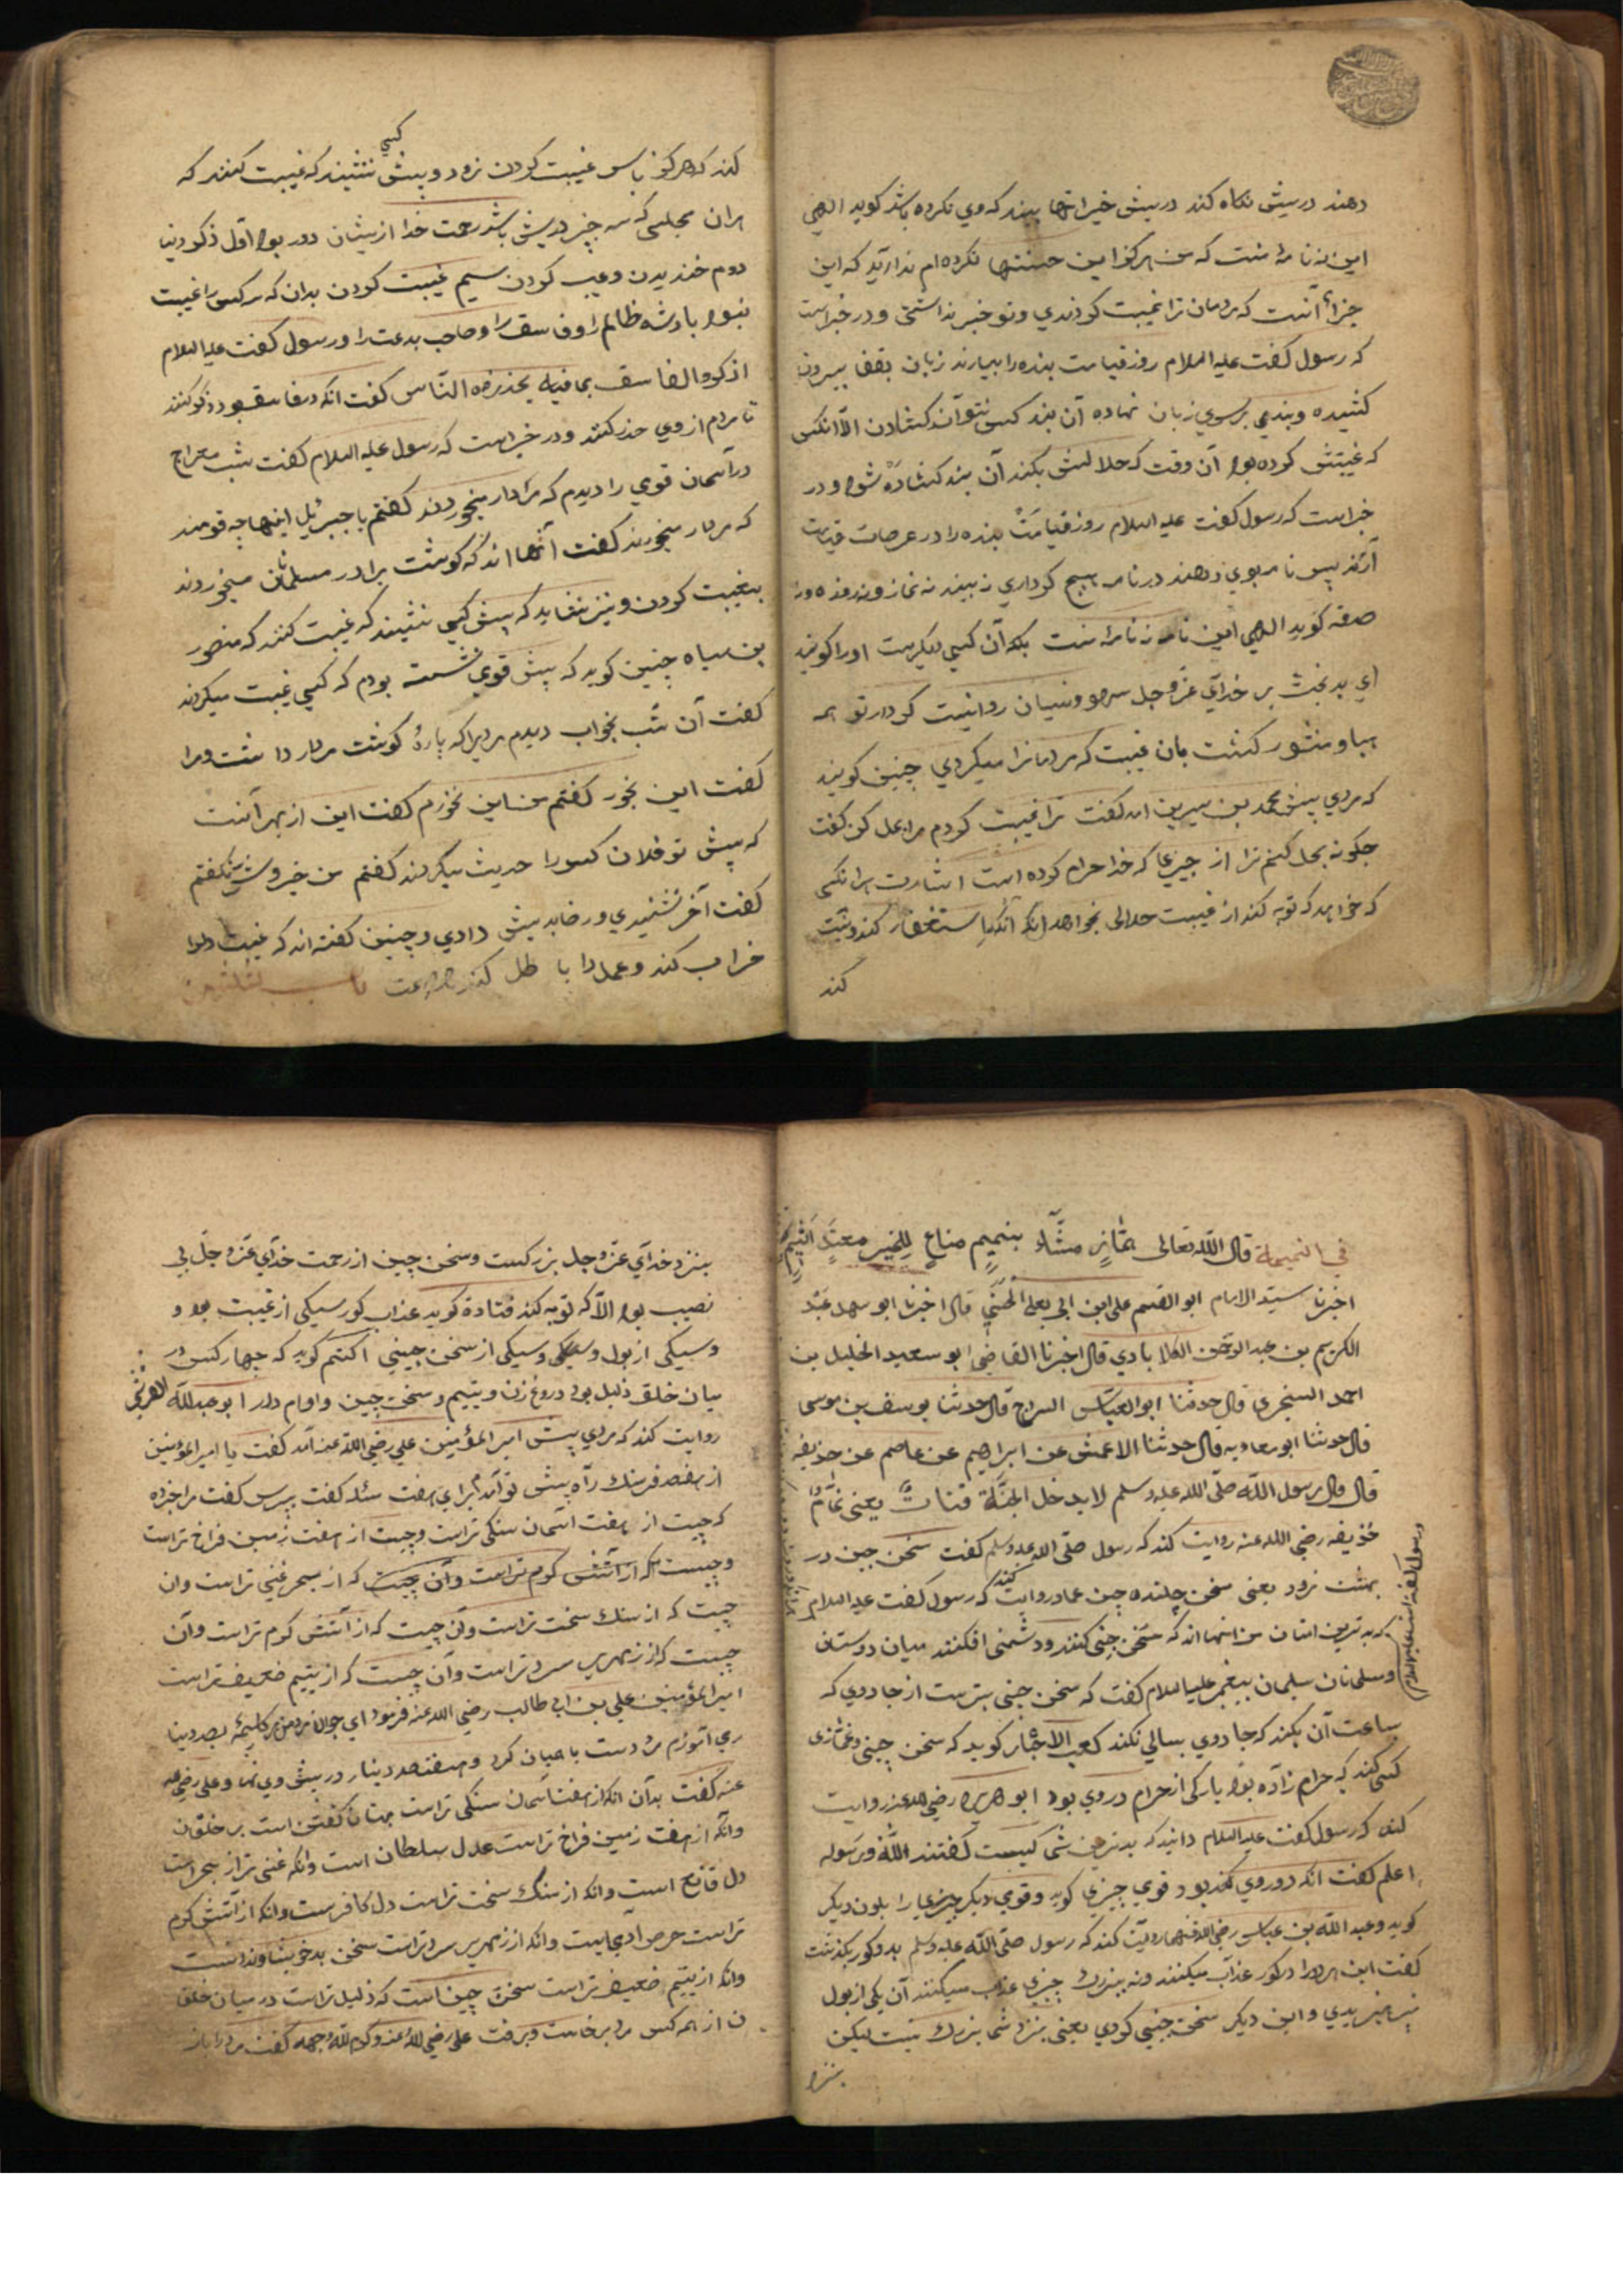 دهند در پیش نکاه کند در پیش خیراتها بیند که وی نکرده باشد کوید الهی
این نه نامهٔ منست که من هرکز این حسنتها نکرده ام ندا آید که این
جزاء آنست که مردمان ترا غیبت کردندی و تو خبر نداشتی و در خبر است
که رسول کفت علیه السلام روز قیامت بنده را بیارند زبان بقفا بیرون
کشیده و بندی بر سوی زبان نهاده آن بند کس نتواند کشادن الا آنکس
که غیبتش کرده بود آن وقت که حلالش بکند آن بند کشاده شود و در
خبر است که رسول کفت علیه السلام روز قیامت بنده را در عرصات قیامت
آرند پس نامه بوی دهند در نامه هیچ کرداری نه بیند نه نماز و نه روزه و نه
صدقه کوید الهی این نامه نه نامهٔ منست بلکه آن کسی دیکرست او را کویند
ای بدبخت بر خدای عز و جل سهو و نسیان روا نیست کردار تو همه
هبا و منثور کشت بدان غیبت که مردمانرا میکردی چنین کویند
که مردی پیش محمد بن سیرین آمد کفت ترا غیبت کردم مرا بحل کن کفت
چکونه بحل کنم ترا از چیزیها که خدا حرام کرده است اشارت برانکسی
که خواهد که توبه کند از غیبت حلالی بخواهد آنکه استغفار کند و نیت
کند
کند که هرکز پاس غیبت کردن نرود و پیش کسی ننشیند که غیبت کنند که
هران مجلسی که سه چیز درپیش باشد رحمت خدا ازیشان دور بود اول ذکر دنیا
دوم خندیدن و عیب کردن سیم غیبت کردن بدان که سه کس را غیبت
نبود پادشه ظالم را و فاسق را و صاحب بدعت را و رسول کفت علیه السلام
اذکروا الفاسق بما فیه یحذره الناس کفت آنکه در فاسق بود ذکر کنند
تا مردم از وی حذر کنند و در خبر است که رسول علیه السلام کفت شب معراج
در آسمان قومی را دیدم که مردار میخوردند کفتم یا جبرئیل اینها چه قومند
که مردار میخورند کفت آنها اند که کوشت برادر مسلمانان میخوردند
بغیبت کردن و نیز نشاید که پیش کسی نشیند که غیبت کنند که منصور
بن سیاه چنین کوید که پیش قومی نشسته بودم که کسی غیبت میکردند
کفت آن شب بخواب دیدم مردیرا که پارهٔ کوشت مردار داشت و مرا
کفت این بخور کفتم من این نخورم کفت این از بهر آنست
که پیش تو فلان کس را حدیث میکردند کفتم من خیر و شر نکفتم
کفت آخر شنیدی و رضا بدیش دادی و چنین کفته اند که غیبت دل را
خراب کند و عمل را باطل کند
فی النمیمة قال الله تعالی همازٍ مشّاءٍ بنمیمٍ مناعٍ للخیر معتدٍ اثیمٍ
اخبرنا سید الامام ابو القسم علی ابن ابی یعلی الحسنی قال اخبرنا ابو سهد عبد
الکریم بن عبد الرحمن الکلابادی قال اخبرنا القاضی ابو سعید الخلیل بن
احمد السنجری قال حدثنا ابو العباس السراج قال حدثنا یوسف بن موسی
قال حدثنا ابو معاویه قال حدثنا الاعمش عن ابراهیم عن عاصم عن حذیفه
قال قال رسول الله صلی الله علیه وسلم لا یدخل الجنة قتات یعنی نمام
حذیفه رضی الله عنه روایت کند که رسول صلی الله علیه وسلم کفت سخن چین در
بهشت نرود یعنی سخن چیننده چین عمار روایت کند که رسول کفت علیه السلام
که بدترین امتان من آنها اند که سخن چینی کنند و دشمنی افکنند میان دوستان
و مسلمانان سلیمان پیغمبر علیه السلام کفت که سخن چینی بترست از جادوی که
بساعت آن بکند که جادوی بسالی نکند کعب الاحبار کوید که سخن چینی و غمازی
کسی کند که حرام زاده بود یا رکی از حرام در وی بود ابو هریره رضی الله عنه روایت
کند که رسول کفت علیه السلام دانید که بدترین شما کیست کفتند الله و رسوله
اعلم کفت آنکه دو روی کند بود قومی چیزی کوید و قومی دیکر چیزها را بلون دیکر
کوید و عبد الله بن عباس رضی الله عنهما روایت کند که رسول صلی الله علیه وسلم بدو کور بکذشت
کفت این هر دو را در کور عذاب میکنند و نه ببزرک چیزی عذاب میکنند آن یکی از بول
نپرهیزیدی و این دیکر سخن چینی کردی یعنی بنزد شما بزرک نیست لیکن
بنزد
بنزد خدای عز و جل بزرکست و سخن چین از رحمت خدای عز و جل بی
نصیب بود الا که توبه کند قتادة کوید عذاب کور سیکی از غیبت بود و
و سیکی از بول و سیکی از سخن چینی اکثم کوید که چهار کس در
میان خلق ذلیل بود دروغ زن و یتیم و سخن چین و اوام دار ابو عبد الله القرشی
روایت کند که مردی پیش امیر المؤمنین علی رضی الله عنه آمد کفت یا امیر المؤمنین
از هفتصد فرسنک راه پیش تو آمدم برای هفت مسئله کفت بپرس کفت مرا خبر ده
که چیست از هفت آسمان سنکی تر است و چیست از هفت زمین فراخ تر است
و چیست که از آتش کرم تر است و آن چیست که از بحر غنی تر است و آن
چیست که از سنک سخت تر است و آن چیست که از آتش کرم تر است و آن
چیست که از زمهریر سرد تر است و آن چیست که از یتیم ضعیف تر است
امیر المؤمنین علی بن ابی طالب رضی الله عنه فرمود ای جوانمرد من هر کلیمهٔ بصد دینا
ری آموزم مرد دست بامیان کرد و هفتصد دینار در پیش وی نهاد و علی رضی الله
عنه کفت بدان آنکه از هفت آسمان سنکی تر است بهتان کفتن است بر خلقان
و آنکه از هفت زمین فراخ تر است عدل سلطان است و آنکه غنی تر از بحر است
دل قانع است و آنکه از سنک سخت تر است دل کافرست و آنکه از آتش کرم
تر است حرص آدمی است و آنکه از زمهریر سرد تر است سخن بد خویشاوندانست
و آنکه از یتیم ضعیف تر است سخن چین است که ذلیل تر است در میان خلق
از همه کس مرد برخاست و برفت علی رضی الله عنه و کرم الله وجهه کفت مرد را باز